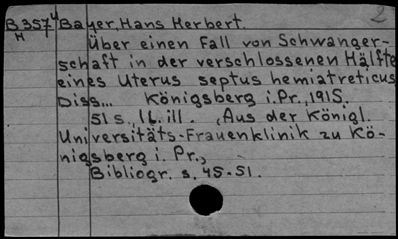 2
B 357⁴ Bayer, Hans Herbert.
H
Über einen Fall von Schwanger-
schaft in der verschlossenen Hälfte
eines Uterus septus hemiatreticus
Diss... Königsberg i.Pr., 1915.
51 s., 16. ill. „Aus der Königl.
Universitäts-Frauenklinik zu Kö-
nigsberg i. Pr.,
Bibliogr. s. 45-51.